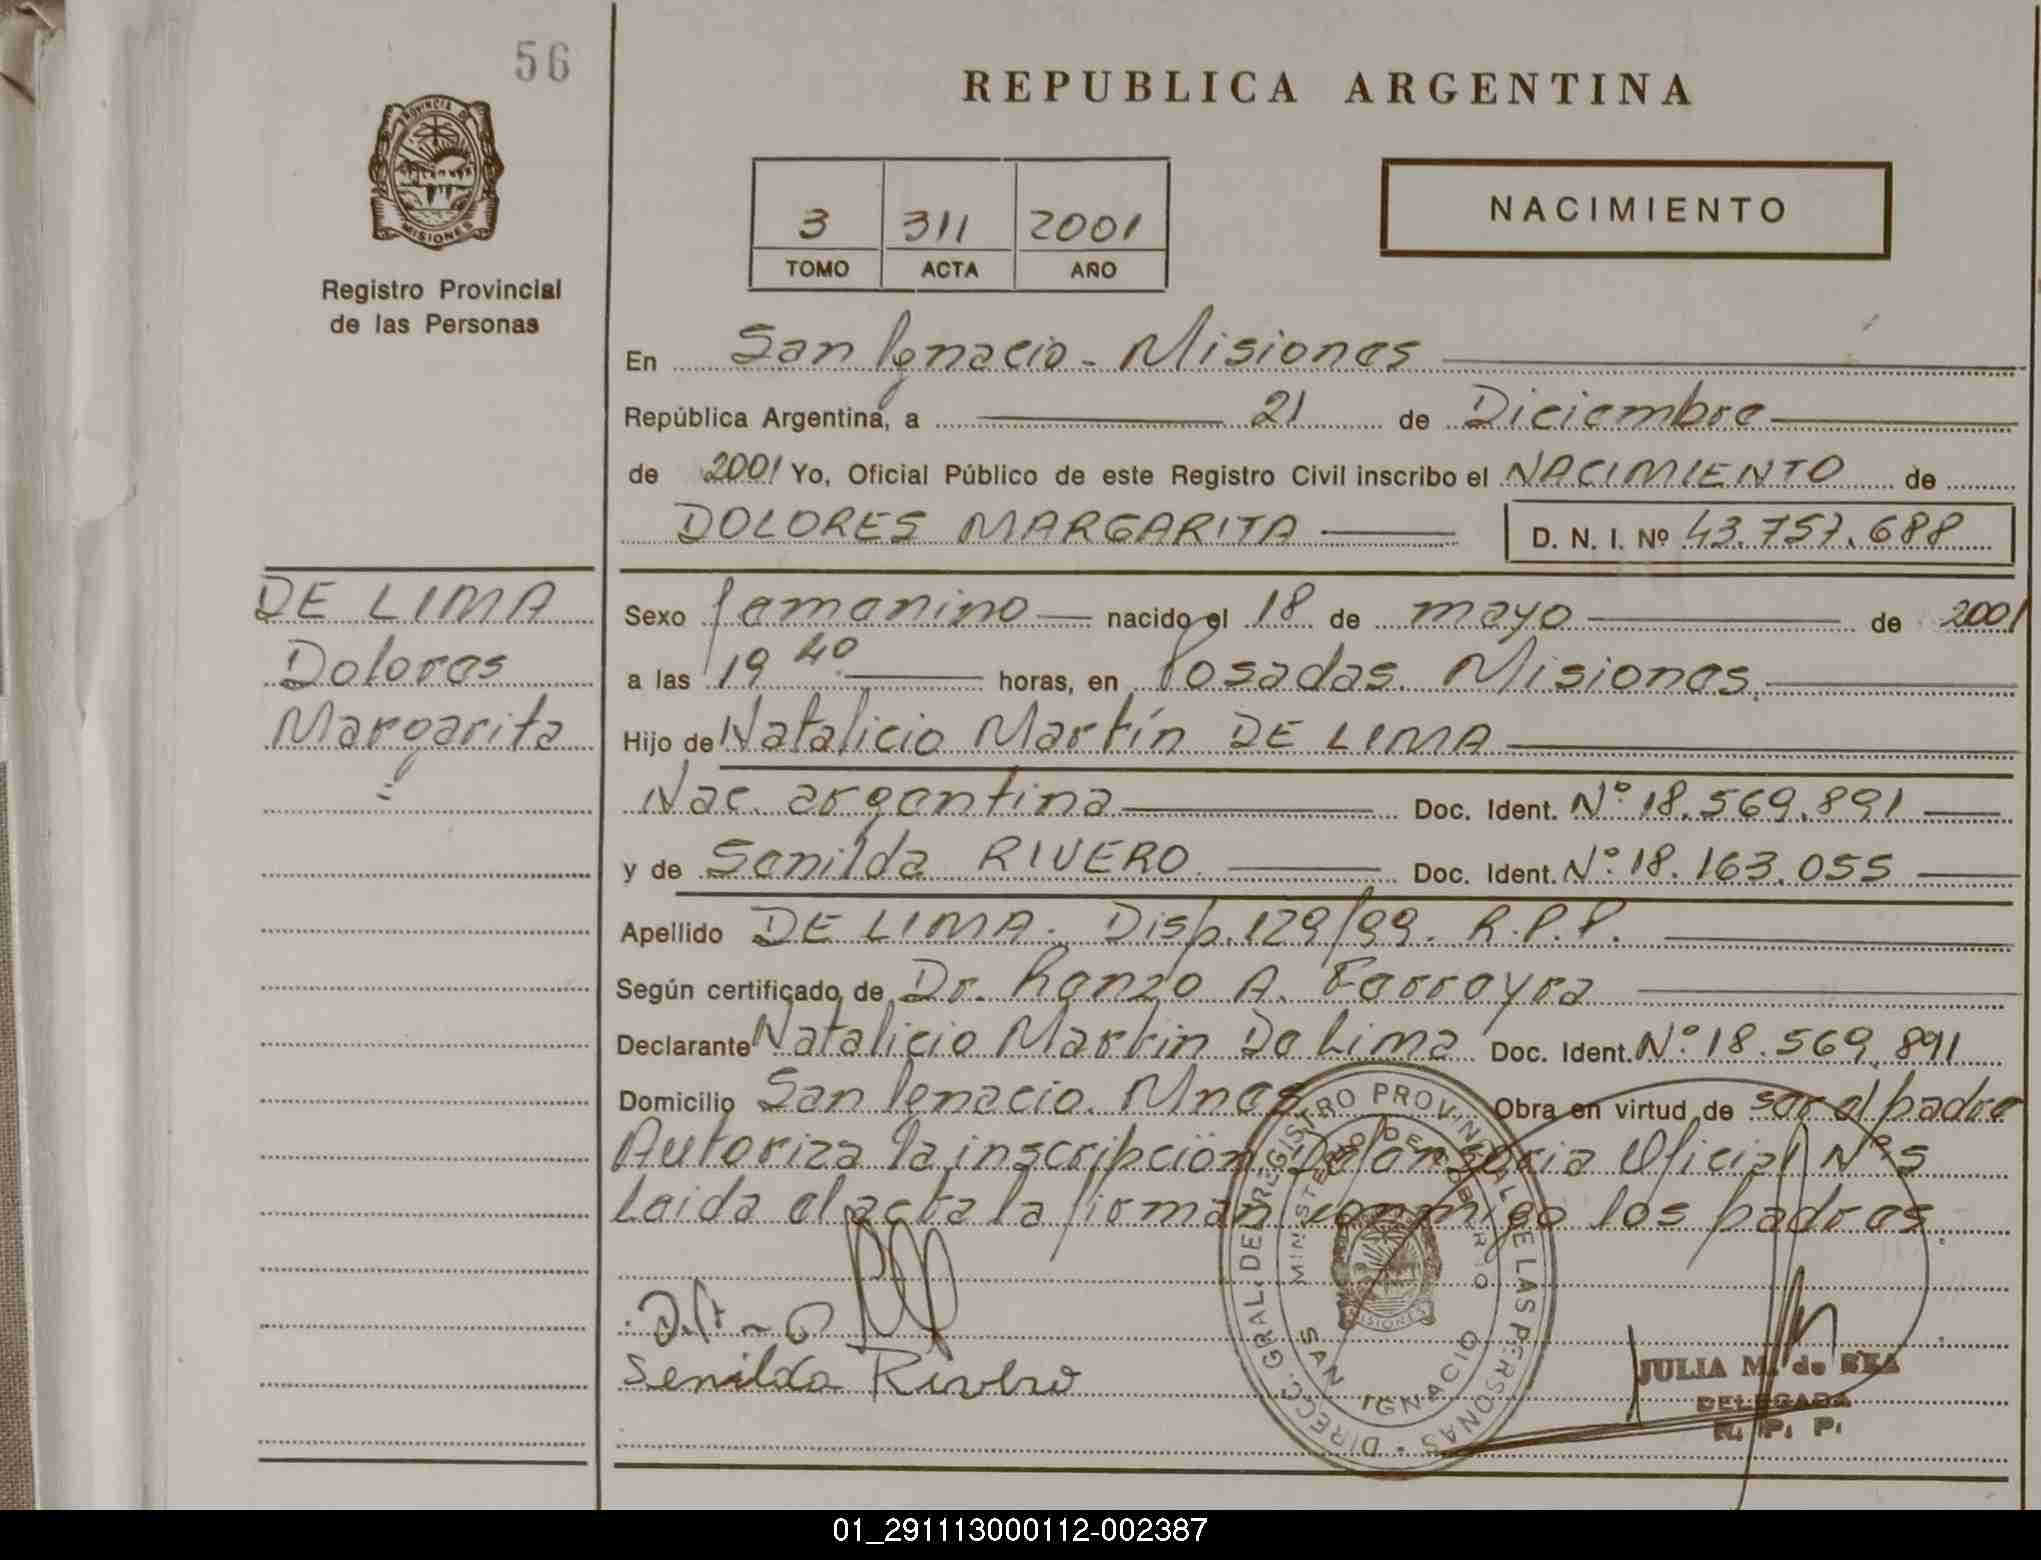 56
REPUBLICA ARGENTINA
PROVINCIA DE
MISIONES
Registro Provincial
de las Personas
3 311 2001
TOMO ACTA AÑO
NACIMIENTO
En San Ignacio - Misiones
República Argentina, a 21 de Diciembre
de 2001 Yo, Oficial Público de este Registro Civil inscribo el NACIMIENTO de
DOLORES MARGARITA D. N. I. Nº 43.757.688
DE LIMA
Dolores
Margarita
=
Sexo femenino nacido el 18 de mayo de 2001
a las 19 40 horas, en Posadas. Misiones.
Hijo de Natalicio Martín DE LIMA
Nac. argentina Doc. Ident. Nº 18.569.891
y de Senilda RIVERO Doc. Ident. Nº 18.163.055
Apellido DE LIMA. Disp. 129/99. R.P.P.
Según certificado de Dr. Renzo A. Ferreyra
Declarante Natalicio Martin De Lima Doc. Ident. Nº 18.569.891
Domicilio San Ignacio. Mnes Obra en virtud de ser el padre
Autoriza la inscripción Defensoria Oficial Nº 5
Leida el acta la firman conmigo los padres.
Senilda Rivero
DIRECC. GRAL. DEL REGISTRO PROVINCIAL DE LAS PERSONAS
MINISTERIO DE GOBIERNO
MISIONES
SAN IGNACIO
JULIA M. de
DELEGADA
R. P. P.
01_291113000112-002387